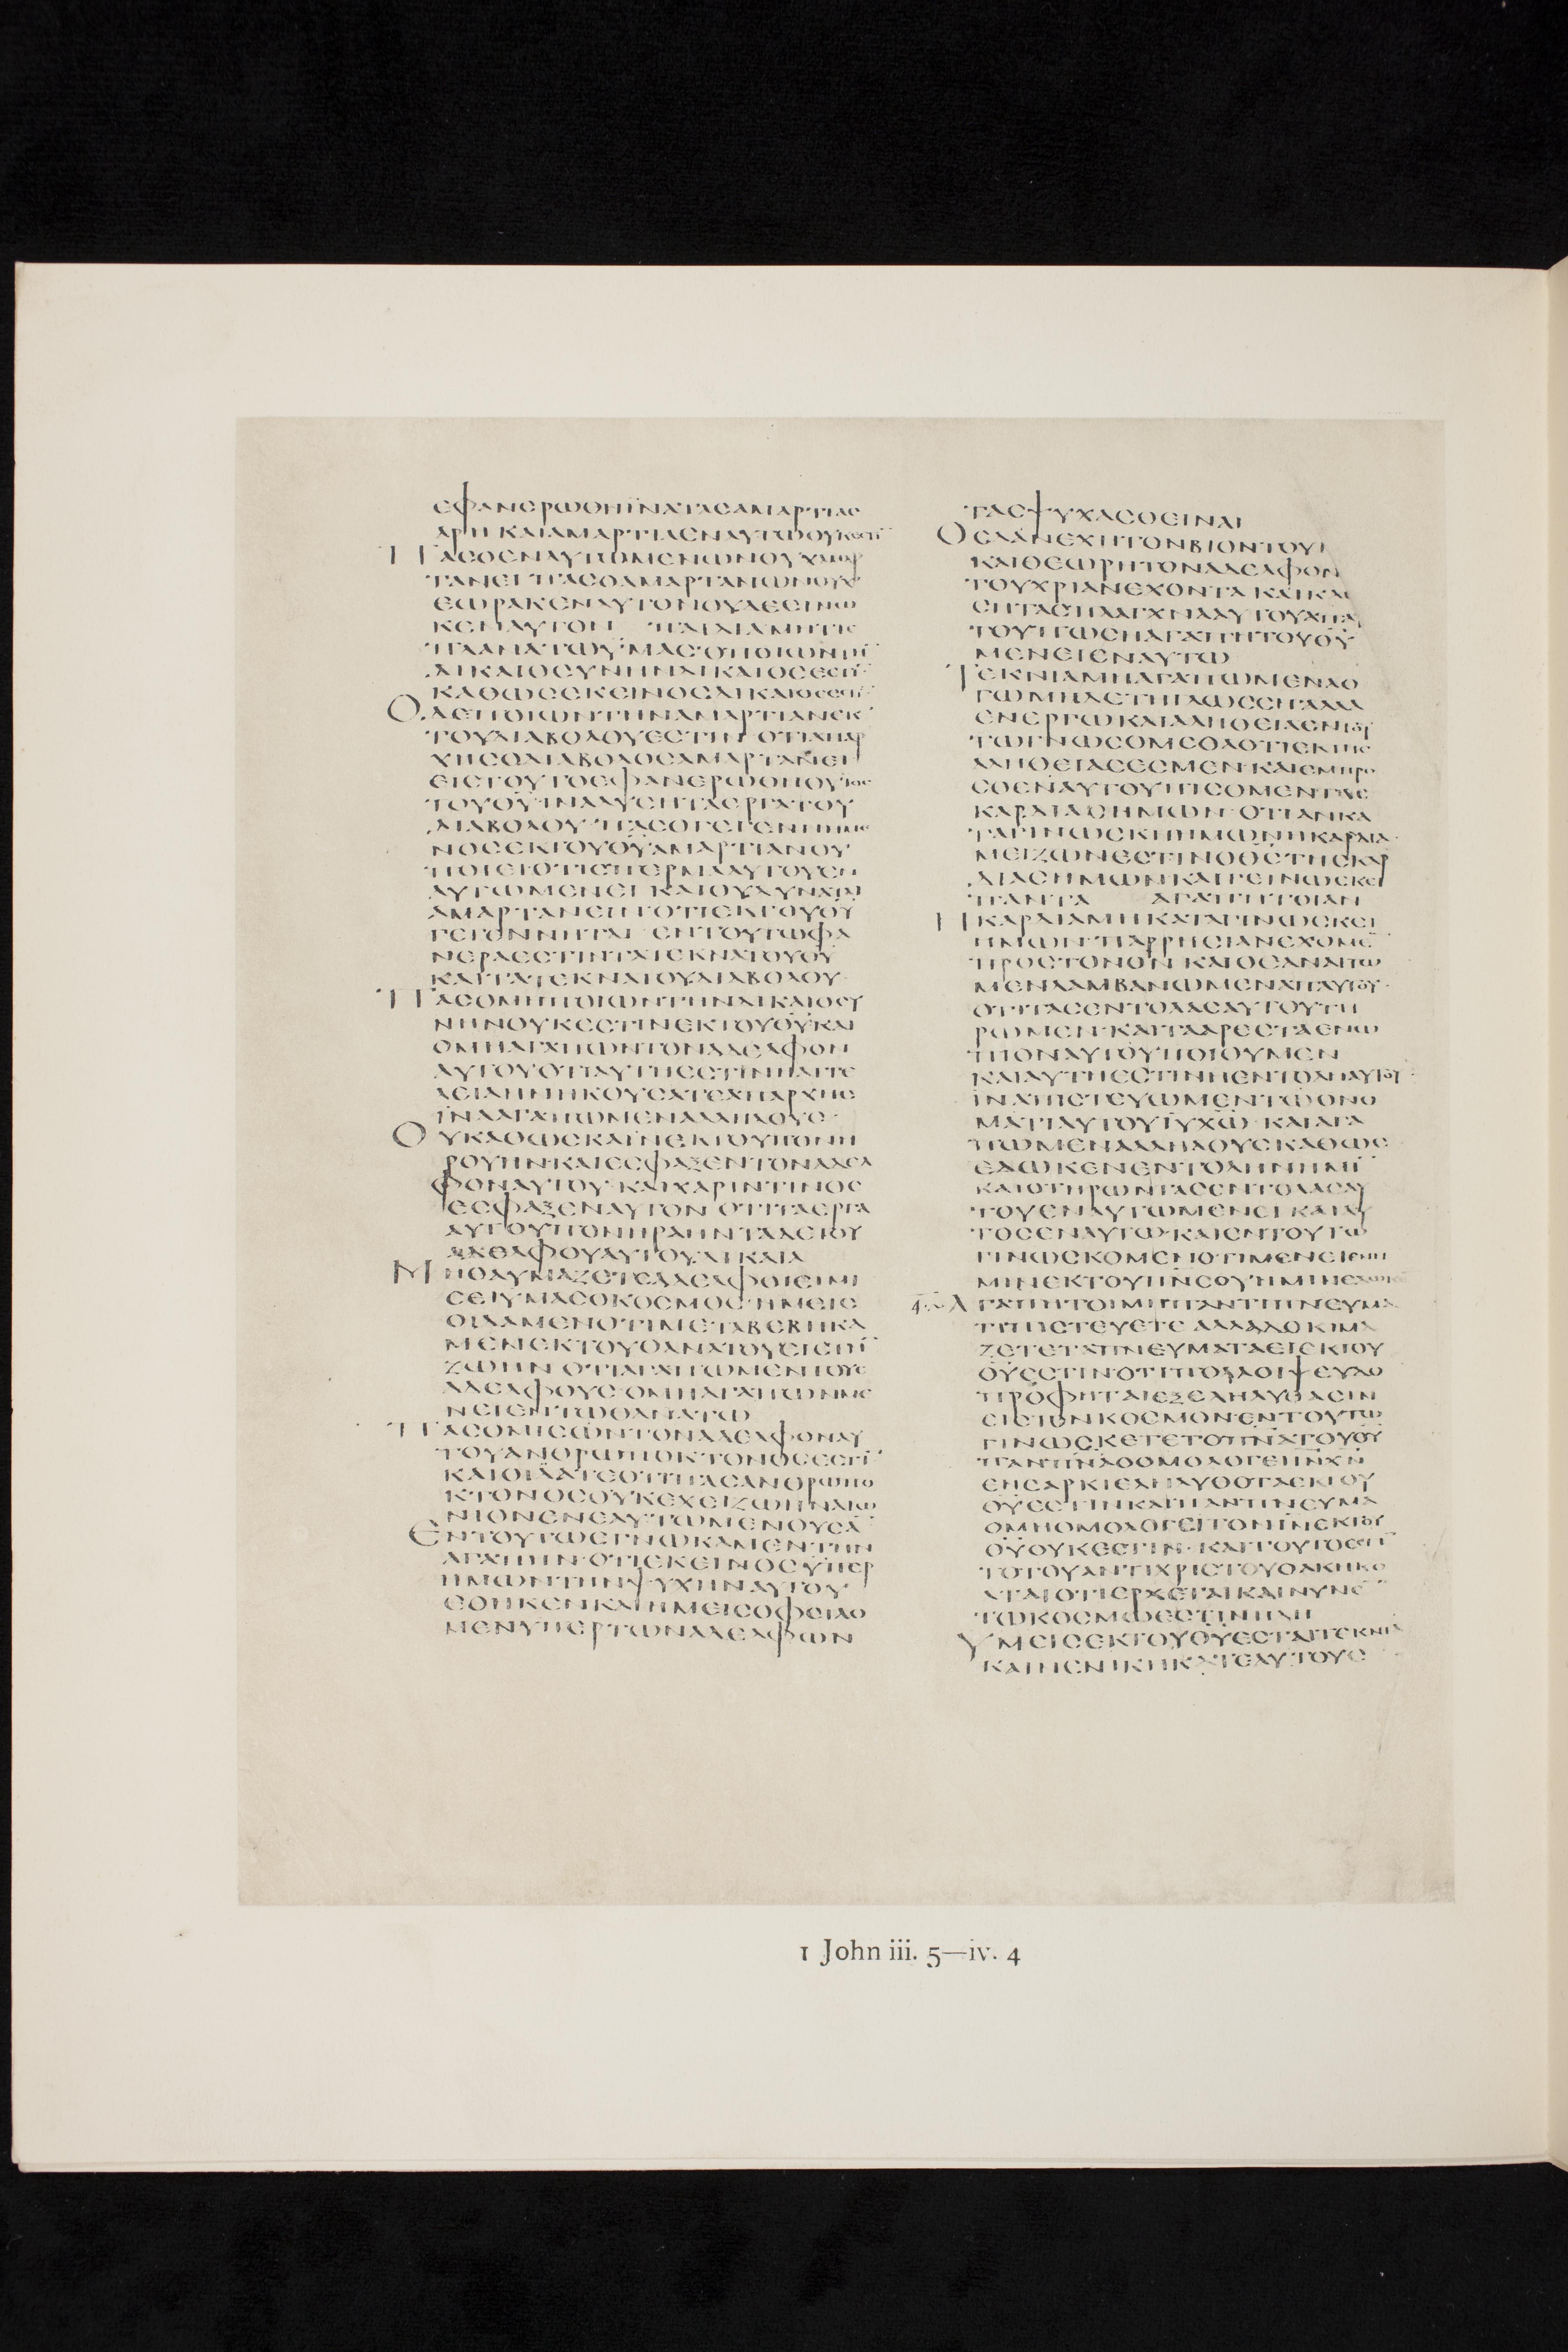 ΕΦΑΝΕΡΩΘΗΪΝΑΤΑΣΑΜΑΡΤΙΑΣ
ΑΡΗ ΚΑΙΑΜΑΡΤΙΑΕΝΑΥΤΩΟΥΚΕΣΤΙ̅
ΠΑΣΟΕΝΑΥΤΩΜΕΝΩΝΟΥΧΑΜΑΡ
ΤΑΝΕΙ ΠΑΣΟΑΜΑΡΤΑΝΩΝΟΥΧ
ΕΩΡΑΚΕΝΑΥΤΟΝΟΥΔΕΕΓΝΩ
ΚΕΝΑΥΤΟΝ ΠΑΙΔΙΑΜΗΤΙΣ
ΠΛΑΝΑΤΩΥΜΑΣ Ο ΠΟΙΩΝΤΗ̅
ΔΙΚΑΙΟΣΥΝΗΝΔΙΚΑΙΟΣΕΣΤΙ̅
ΚΑΘΩΣΕΚΕΙΝΟΣΔΙΚΑΙΟΣΕΣΤΙ̅
Ο.ΔΕΠΟΙΩΝΤΗΝΑΜΑΡΤΙΑΝΕΚ
ΤΟΥΔΙΑΒΟΛΟΥΕΣΤΙΝ ΟΤΙΑΠΑΡ
ΧΗΣΟΔΙΑΒΟΛΟΣΑΜΑΡΤΑΝΕΙ
ΕΙΣΤΟΥΤΟΕΦΑΝΕΡΩΘΗΟΥΪΟΣ
ΤΟΥΘ̅Υ̅ ΙΝΑΛΥΣΗΤΑΕΡΓΑΤΟΥ
ΔΙΑΒΟΛΟΥ ΠΑΣΟΓΕΓΕΝΝΗΜΕ
ΝΟΣΕΚΤΟΥΘ̅Υ̅ΑΜΑΡΤΙΑΝΟΥ
ΠΟΙΕΙΟΤΙΣΠΕΡΜΑΑΥΤΟΥΕΝ
ΑΥΤΩΜΕΝΕΙ ΚΑΙΟΥΔΥΝΑΤΑΙ
ΑΜΑΡΤΑΝΕΙΝ ΟΤΙΕΚΤΟΥΘ̅Υ̅
ΓΕΓΟΝΝΗΤΑΙ ΕΝΤΟΥΤΩΦΑ
ΝΕΡΑΕΣΤΙΝΤΑΤΕΚΝΑΤΟΥΘ̅Υ̅
ΚΑΙΤΑΤΕΚΝΑΤΟΥΔΙΑΒΟΛΟΥ
ΠΑΣΟΜΗΠΟΙΩΝΤΗΝΔΙΚΑΙΟΣΥ
ΝΗΝΟΥΚΕΣΤΙΝΕΚΤΟΥΘ̅Υ̅ΚΑΙ
ΟΜΗΑΓΑΠΩΝΤΟΝΑΔΕΛΦΟΝ
ΑΥΤΟΥΟΤΙΑΥΤΗΕΣΤΙΝΗΑΓΓΕ
ΛΕΙΑΗΝΗΚΟΥΣΑΤΕΑΠΑΡΧΗΣ
ΪΝΑΑΓΑΠΩΜΕΝΑΛΛΗΛΟΥΣ
ΟΥΚΑΘΩΣΚΑΪΝΕΚΤΟΥΠΟΝΗ
ΡΟΥΗΝ ΚΑΙΕΣΦΑΞΕΝΤΟΝΑΔΕΛ
ΦΟΝΑΥΤΟΥ ΚΑΙΧΑΡΙΝΤΙΝΟΣ
ΕΣΦΑΞΕΝΑΥΤΟΝ ΟΤΙΤΑΕΡΓΑ
ΑΥΤΟΥΠΟΝΗΡΑΗΝΤΑΔΕΤΟΥ
ΑΔΕΛΦΟΥΑΥΤΟΥΔΙΚΑΙΑ
ΜΗΘΑΥΜΑΖΕΤΕΑΔΕΛΦΟΙΕΙΜΙ
ΣΕΙΥΜΑΣΟΚΟΣΜΟΣ ΗΜΕΙΣ
ΟΙΔΑΜΕΝΟΤΙΜΕΤΑΒΕΒΗΚΑ
ΜΕΝΕΚΤΟΥΘΑΝΑΤΟΥΕΙΣΤΗ̅
ΖΩΗΝ ΟΤΙΑΓΑΠΩΜΕΝΤΟΥΣ
ΑΔΕΛΦΟΥΣ ΟΜΗΑΓΑΠΩΝΜΕ
ΝΕΙΕΝΤΩΘΑΝΑΤΩ
ΠΑΣΟΜΙΣΩΝΤΟΝΑΔΕΛΦΟΝΑΥ
ΤΟΥΑΝΘΡΩΠΟΚΤΟΝΟΣΕΣΤΙ̅
ΚΑΙΟΙΔΑΤΕΟΤΙΠΑΣΑΝΘΡΩΠΟ
ΚΤΟΝΟΣΟΥΚΕΧΕΙΖΩΗΝΑΙΩ
ΝΙΟΝΕΝΕΑΥΤΩΜΕΝΟΥΣΑ̅
ΕΝΤΟΥΤΩΕΓΝΩΚΑΜΕΝΤΗΝ
ΑΓΑΠΗΝ ΟΤΙΕΚΕΙΝΟΣΥΠΕΡ
ΗΜΩΝΤΗΝΨΥΧΗΝΑΥΤΟΥ
ΕΘΗΚΕΝΚΑΙΗΜΕΙΣΟΦΕΙΛΟ
ΜΕΝΥΠΕΡΤΩΝΑΔΕΛΦΩΝ
ΤΑΣΨΥΧΑΣΘΕΙΝΑΙ
ΟΣΑΑΝΕΧΗΤΟΝΒΙΟΝΤΟΥ
ΚΑΙΘΕΩΡΗΤΟΝΑΔΕΛΦΟΝ
ΤΟΥΧΡΙΑΝΕΧΟΝΤΑ ΚΑΙΚΛΙ
ΣΗΤΑΣΠΛΑΓΧΝΑΑΥΤΟΥΑΠΑ
ΤΟΥΠΩΣΗΑΓΑΠΗΤΟΥΘ̅Υ̅
ΜΕΝΕΙΕΝΑΥΤΩ
ΤΕΚΝΙΑΜΗΑΓΑΠΩΜΕΝΛΟ
ΓΩΜΗΔΕΤΗΓΛΩΣΣΗΑΛΛΑ
ΕΝΕΡΓΩΚΑΙΑΛΗΘΕΙΑΕΝΤΟΥ
ΤΩΓΝΩΣΟΜΕΘΑΟΤΙΕΚΤΗΣ
ΑΛΗΘΕΙΑΣΕΣΜΕΝ ΚΑΙΕΜΠΡΟ
ΣΘΕΝΑΥΤΟΥΠΙΣΟΜΕΝΤΑΣ
ΚΑΡΔΙΑΣΗΜΩΝ ΟΤΙΑΝΚΑ
ΤΑΓΙΝΩΣΚΗΗΜΩΝΗΚΑΡΔΙΑ
ΜΕΙΖΩΝΕΣΤΙΝΟΘ̅Σ̅ΤΗΣΚΑΡ
ΔΙΑΣΗΜΩΝΚΑΙΓΕΙΝΩΣΚΕΙ
ΠΑΝΤΑ ΑΓΑΠΗΤΟΙΑΝ
ΗΚΑΡΔΙΑΜΗΚΑΤΑΓΙΝΩΣΚΕΙ
ΗΜΩΝ ΠΑΡΡΗΣΙΑΝΕΧΟΜΕ̅
ΠΡΟΣΤΟΝΘ̅Ν̅ ΚΑΙΟΕΑΝΑΙΤΩ
ΜΕΝΛΑΜΒΑΝΩΜΕΝΑΠΑΥΤΟΥ
ΟΤΙΤΑΣΕΝΤΟΛΑΣΑΥΤΟΥΤΗ
ΡΩΜΕΝ ΚΑΙΤΑΑΡΕΣΤΑΕΝΩ
ΠΙΟΝΑΥΤΟΥΠΟΙΟΥΜΕΝ
ΚΑΙΑΥΤΗΕΣΤΙΝΗΕΝΤΟΛΗΑΥΤΟΥ
ΪΝΑΠΙΣΤΕΥΩΜΕΝΤΩΟΝΟ
ΜΑΤΙΑΥΤΟΥΙ̅Υ̅Χ̅Ω̅ ΚΑΙΑΓΑ
ΠΩΜΕΝΑΛΛΗΛΟΥΣΚΑΘΩΣ
ΕΔΩΚΕΝΕΝΤΟΛΗΝΗΜΙ̅
ΚΑΙΟΤΗΡΩΝΤΑΣΕΝΤΟΛΑΣΑΥ
ΤΟΥΕΝΑΥΤΩΜΕΝΕΙ ΚΑΙΑΥ
ΤΟΣΕΝΑΥΤΩ ΚΑΙΕΝΤΟΥΤΩ
ΓΙΝΩΣΚΟΜΕΝΟΤΙΜΕΝΕΙΕΝΗ
ΜΙΝΕΚΤΟΥΠ̅Ν̅ΣΟΥΗΜΙΝΕΔΩΚΕ
ΑΓΑΠΗΤΟΙΜΗΠΑΝΤΙΠΝΕΥΜΑ
ΤΙΠΙΣΤΕΥΕΤΕ ΑΛΛΑΔΟΚΙΜΑ
ΖΕΤΕΤΑΠΝΕΥΜΑΤΑΕΙΕΚΤΟΥ
Θ̅Υ̅ΕΣΤΙΝ ΟΤΙΠΟΛΛΟΙΨΕΥΔΟ
ΠΡΟΦΗΤΑΙΕΞΕΛΗΛΥΘΑΣΙΝ
ΕΙΣΤΟΝΚΟΣΜΟΝ ΕΝΤΟΥΤΩ
ΓΙΝΩΣΚΕΤΕΤΟΠ̅Ν̅Α̅ΤΟΥΘ̅Υ̅
ΠΑΝΠ̅Ν̅Α̅ΟΟΜΟΛΟΓΕΙΙ̅Ν̅Χ̅Ν̅
ΕΝΣΑΡΚΙΕΛΗΛΥΘΟΤΑΕΚΤΟΥ
Θ̅Υ̅ΕΣΤΙΝΚΑΙΠΑΝΤΙΝΕΥΜΑ
ΟΜΗΟΜΟΛΟΓΕΙΤΟΝΙ̅Ν̅ΕΚΤΟΥ
Θ̅Υ̅ΟΥΚΕΣΤΙΝ ΚΑΙΤΟΥΤΟΕΣΤΙ̅
ΤΟΤΟΥΑΝΤΙΧΡΙΣΤΟΥΟΑΚΗΚΟ
ΑΤΑΙΟΤΙΕΡΧΕΤΑΙΚΑΙΝΥΝΕ̅
ΤΩΚΟΣΜΩΕΣΤΙΝΗΔΗ
ΥΜΕΙΣΕΚΤΟΥΘ̅Υ̅ΕΣΤΑΙΤΕΚΝΙΑ
ΚΑΙΝΕΝΙΚΗΚΑΤΕΑΥΤΟΥΣ
1 John iii. 5—iv. 4